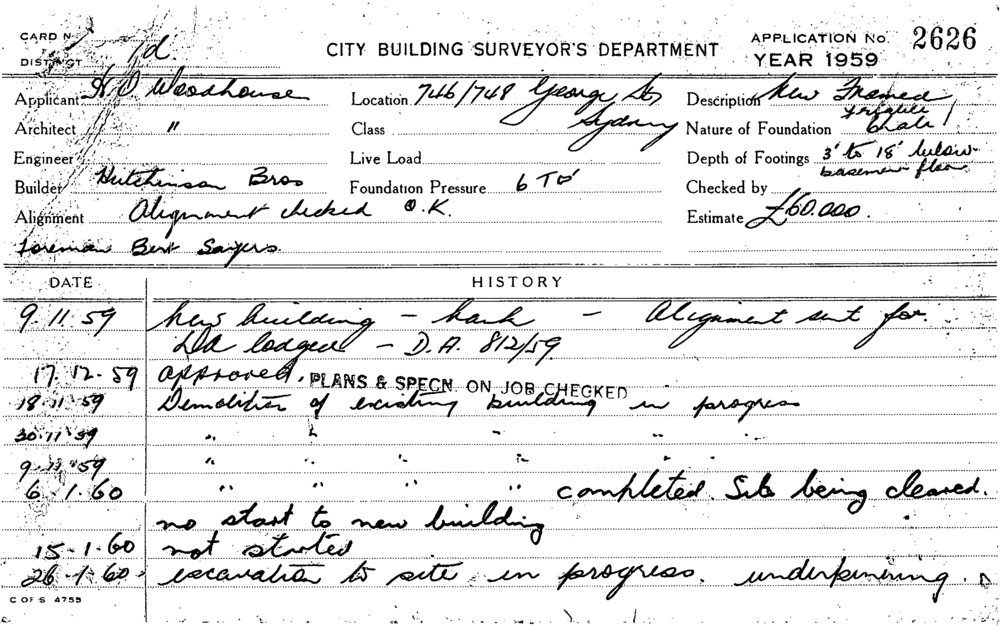 CARD No. CITY BUILDING SURVEYOR'S DEPARTMENT APPLICATION No. 2626
DISTRICT 1d. YEAR 1959
Applicant H O Woodhouse Location 746/748 George St, Description New Framed
Architect " Class Sydney Nature of Foundation friable shale
Engineer Live Load Depth of Footings 3' to 18' below basement floor
Builder Hutchinson Bros Foundation Pressure 6 Checked by
Alignment Alignment checked O.K. Estimate £60.000.
Foreman Bert Sayers.
DATE HISTORY
9.11.59 New building – bank – Alignment sent for.
DA lodged – D.A. 812/59
17.12.59 approved. PLANS & SPECN. ON JOB CHECKED
18.11.59 Demolition of existing building in progress
30.11.59 " " " " "
9. .59 " " " " " "
6.1.60 " " " " completed. Site being cleared.
no start to new building
15-1-60 not started
26-1-60 excavation to site in progress. underpinning.
C OF S 4755